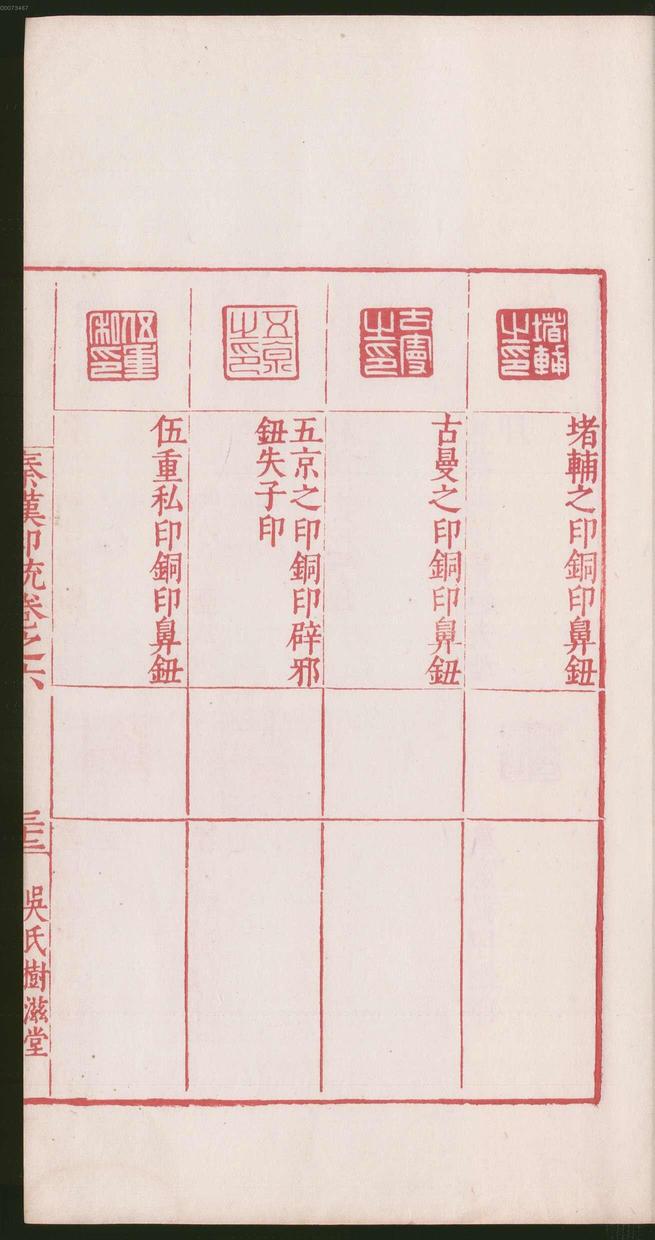 00073467
堵輔之印
堵輔之印銅印鼻鈕
古曼之印
古曼之印銅印鼻鈕
五京之印
五京之印銅印辟邪
鈕失子印
伍重私印
伍重私印銅印鼻鈕
秦漢印統卷之六
吳氏樹滋堂